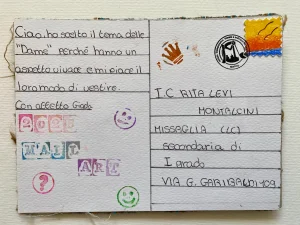 Ciao, ho scelto il tema delle
"Dame" perché hanno un
aspetto vivace e mi piace il
loro modo di vestire.
Con affetto Giada
MAIL
ART
?
I C RITA LEVI
MONTALCINI
MISSAGLIA (LC)
secondaria di
I grado
VIA G. GARIBALDI 109